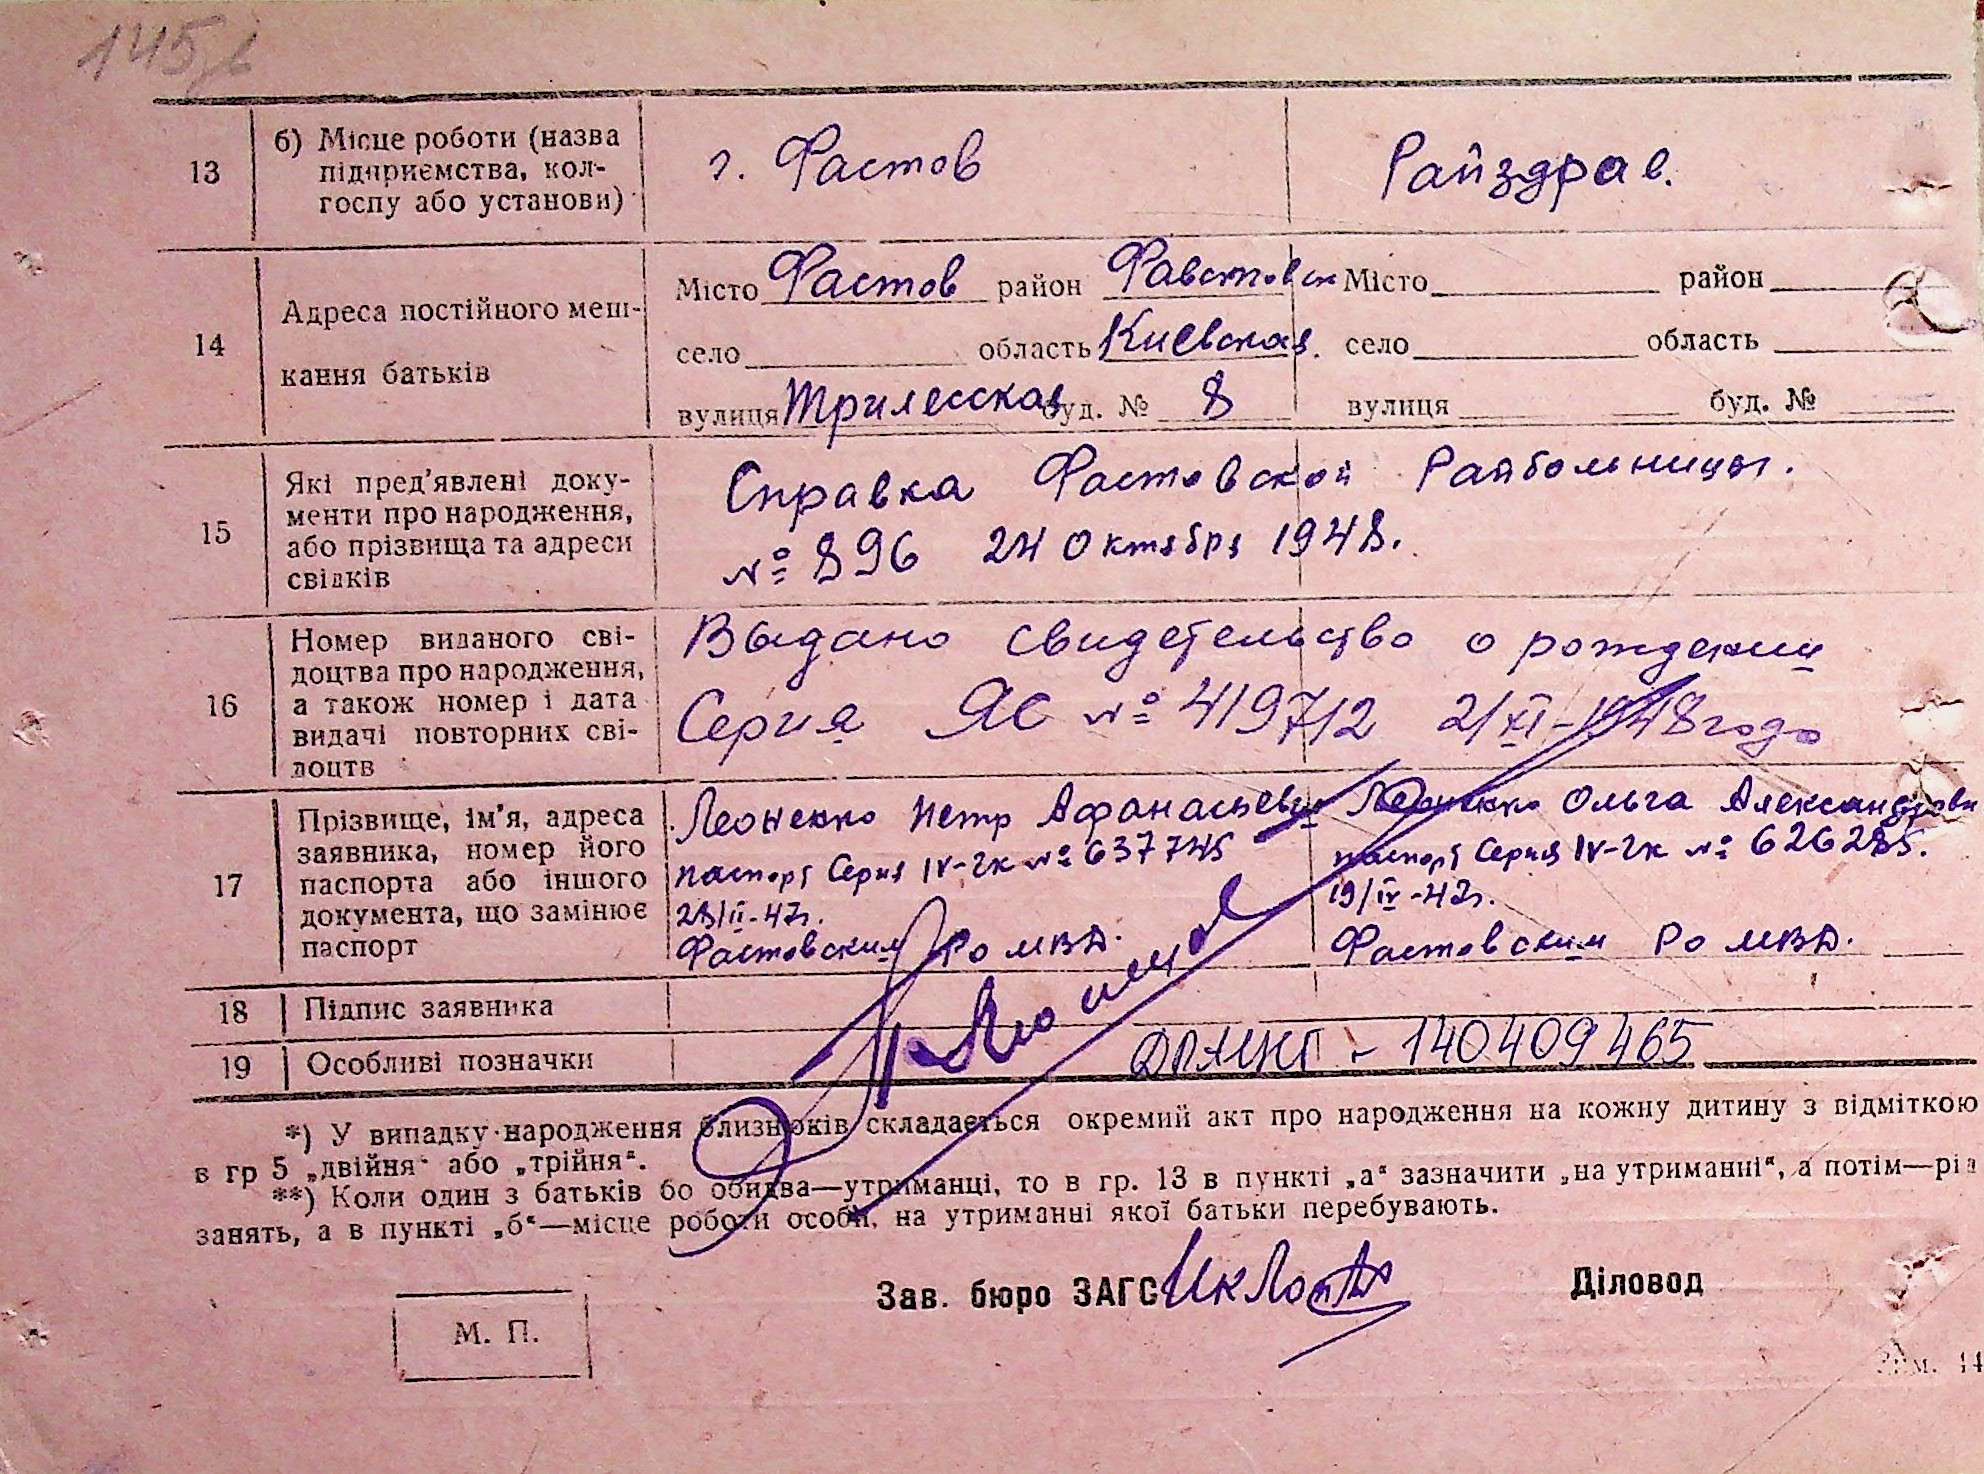 145
13 б) Місце роботи (назва підприємства, колгоспу або установи) г. Фастов Райздрав.
14 Адреса постійного мешкання батьків
Місто Фастов район Фавстовск Місто район
село область Киевская. село область
вулиця Трилесская буд. № 8 вулиця буд. №
15 Які пред'явлені документи про народження, або прізвища та адреси свідків
Справка Фастовской Райбольницы.
№ 896 24 Октября 1948.
16 Номер виданого свідоцтва про народження, а також номер і дата видачі повторних свідоцтв
Выдано свидетельство о рождении
Серия ЯС № 419712 2/XI-1948 года
17 Прізвище, ім'я, адреса заявника, номер його паспорта або іншого документа, що замінює паспорт
Леоненко Петр Афанасьевич
паспорт Серия IV-ЧК № 637745
28/II-47г.
Фастовским Ро МВД.
Леоненко Ольга Александровн
паспорт Серия IV-ЧК № 626285.
19/IV-47г.
Фастовским Ро МВД.
18 Підпис заявника
19 Особливі позначки - 140409465
*) У випадку народження близнюків складається окремий акт про народження на кожну дитину з відміткою
в гр 5 „двійня" або „трійня".
**) Коли один з батьків бо обидва—утриманці, то в гр. 13 в пункті „а" зазначити „на утриманні", а потім—рід
занять, а в пункті „б"—місце роботи особи, на утриманні якої батьки перебувають.
Зав. бюро ЗАГС Діловод
М. П.